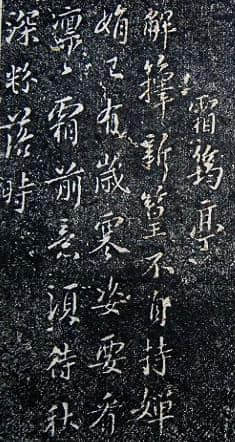 霜筠亭
解籜新篁不自持嬋
娟已有歲寒姿要看
凜凜霜前意須待秋
深粉落時